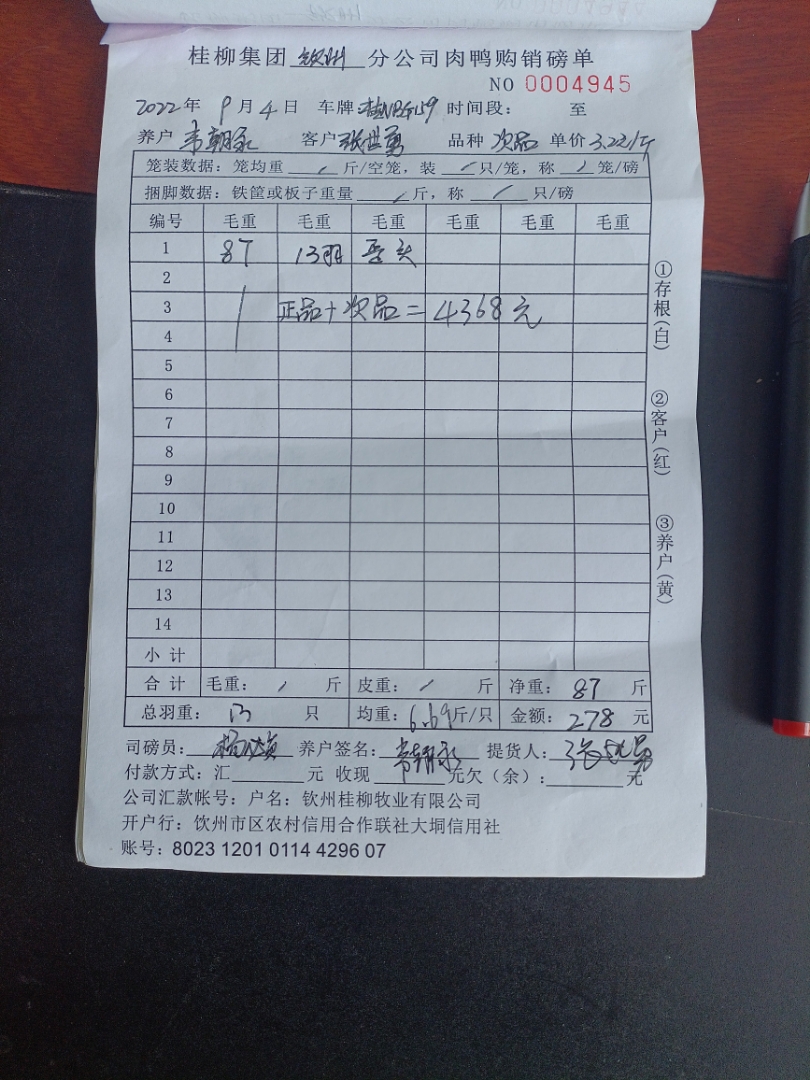 桂柳集团 钦州 分公司肉鸭购销磅单
NO 0004945
2022年 9月 4日 车牌: 时间段: 至
养户 韦朝永 客户 张世勇 品种 次品 单价 3.2元/斤
笼装数据: 笼均重 / 斤/空笼, 装 / 只/笼, 称 / 笼/磅
捆脚数据: 铁筐或板子重量 / 斤, 称 / 只/磅
编号 毛重 毛重 毛重 毛重 毛重 毛重
1 87 13羽
2
3 正品+次品=4368元
4
5
6
7
8
9
10
11
12
13
14
小计
合计 毛重: / 斤 皮重: / 斤 净重: 87 斤
总羽重: 13 只 均重: 6.69斤/只 金额: 278 元
司磅员: 养户签名: 韦朝永 提货人: 张世勇
付款方式: 汇 元 收现 元欠(余): 元
公司汇款帐号: 户名: 钦州桂柳牧业有限公司
开户行: 钦州市区农村信用合作联社大垌信用社
账号: 8023 1201 0114 4296 07
①存根(白)
②客户(红)
③养户(黄)